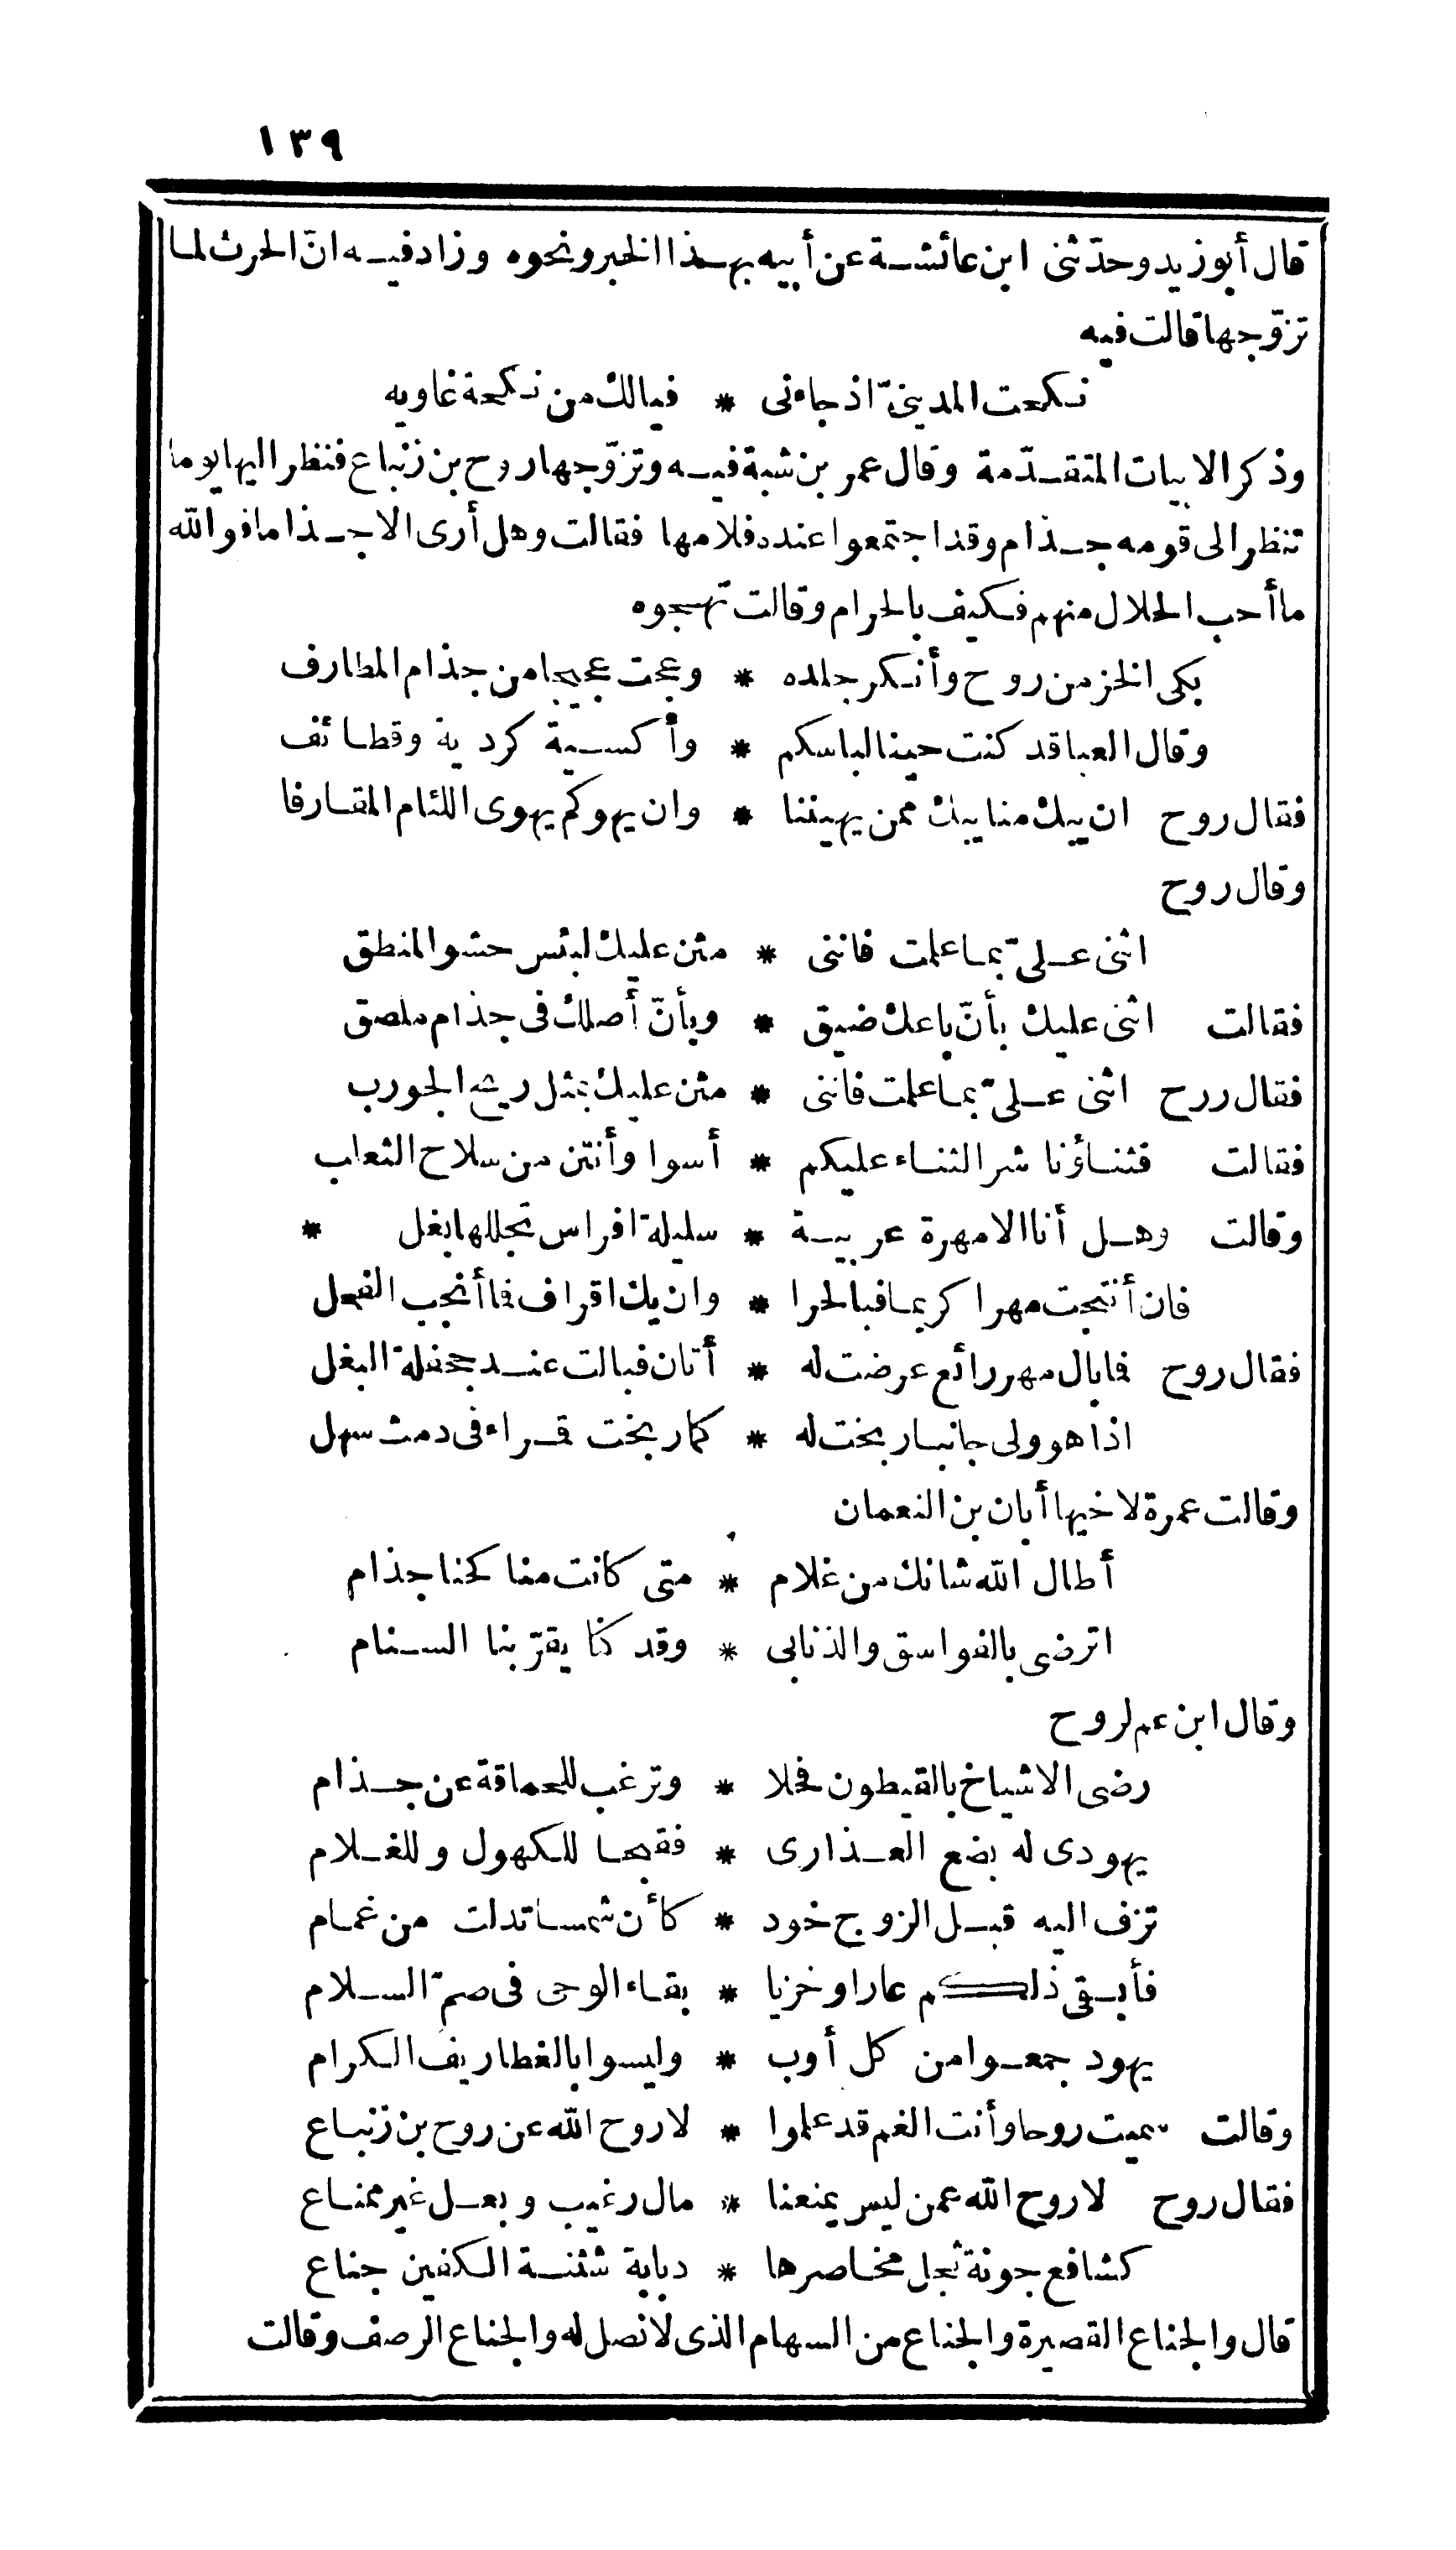 ١٣٩
قال أبو زيد وحدّثنى ابن عائشة عن أبيه بهذا الخبر ونحوه وزاد فيه انّ الحرث لما
تزوّجها قالت فيه
نكحت المدينىّ اذ جاءنى * فيالك من نكحة غاويه
وذكر الابيات المتقدّمة وقال عمر بن شبة فيه وتزوّجها روح بن زنباع فنظر اليها يوما
تنظر الى قومه جذام وقد اجتمعوا عنده فلامها فقالت وهل أرى الا جذاما فوالله
ما أحب الحلال منهم فكيف بالحرام وقالت تهجوه
بكى الخز من روح وأنكر جلده * وعجت عجيجا من جذام المطارف
وقال العبا قد كنت حينا لباسكم * وأكسية كردية وقطائف
فقال روح ان يبك منا يبك ممن يهيننا * وان يهوكم يهوى اللئام المقارفا
وقال روح
اثنى علىّ بما علمت فاننى * مثن عليك لبئس حشو المنطق
فقالت اثنى عليك بأنّ باعك ضيق * وبأنّ أصلك فى جذام ملصق
فقال روح اثنى علىّ بما علمت فاننى * مثن عليك بمثل ريح الجورب
فقالت فثناؤنا شر الثناء عليكم * أسوا وأنتن من سلاح الثعاب
وقالت وهل أنا الا مهرة عربية * سليلة افراس تجللها بغل *
فان أنتجت مهرا كريما فبالحرا * وان يك اقراف فما أنجب الفحل
فقال روح فما بال مهر رائع عرضت له * أتان فبالت عند جحفلة البغل
اذا هو ولى جانبا ربخت له * كما ربخت قراء فى دمث سهل
وقالت عمرة لاخيها أبان بن النعمان
أطال الله شانك من غلام * متى كانت مناكحنا جذام
اترضى بالفواسق والذنابى * وقد كنا يقرّ بنا السنام
وقال ابن عم لروح
رضى الاشياخ بالقيطون فحلا * وترغب للحماقة عن جذام
يهودى له بضع العذارى * فقبحا للكهول وللغلام
تزف اليه قبل الزوج خود * كأن شمسا تدلت من غمام
فأبقى ذلكم عارا وخزيا * بقاء الوحى فى صمّ السلام
يهود جمعوا من كل أوب * وليسوا بالغطاريف الكرام
وقالت سميت روحا وأنت الغم قد علموا * لا روح الله عن روح بن زنباع
فقال روح لا روح الله عمن ليس يمنعنا * مال رغيب وبعل غير ممناع
كشافع جونة ثجل مخاصرها * دبابة شثنة الكفين جناع
قال والجناع القصيرة والجناع من السهام الذى لا نصل له والجناع الرصف وقالت